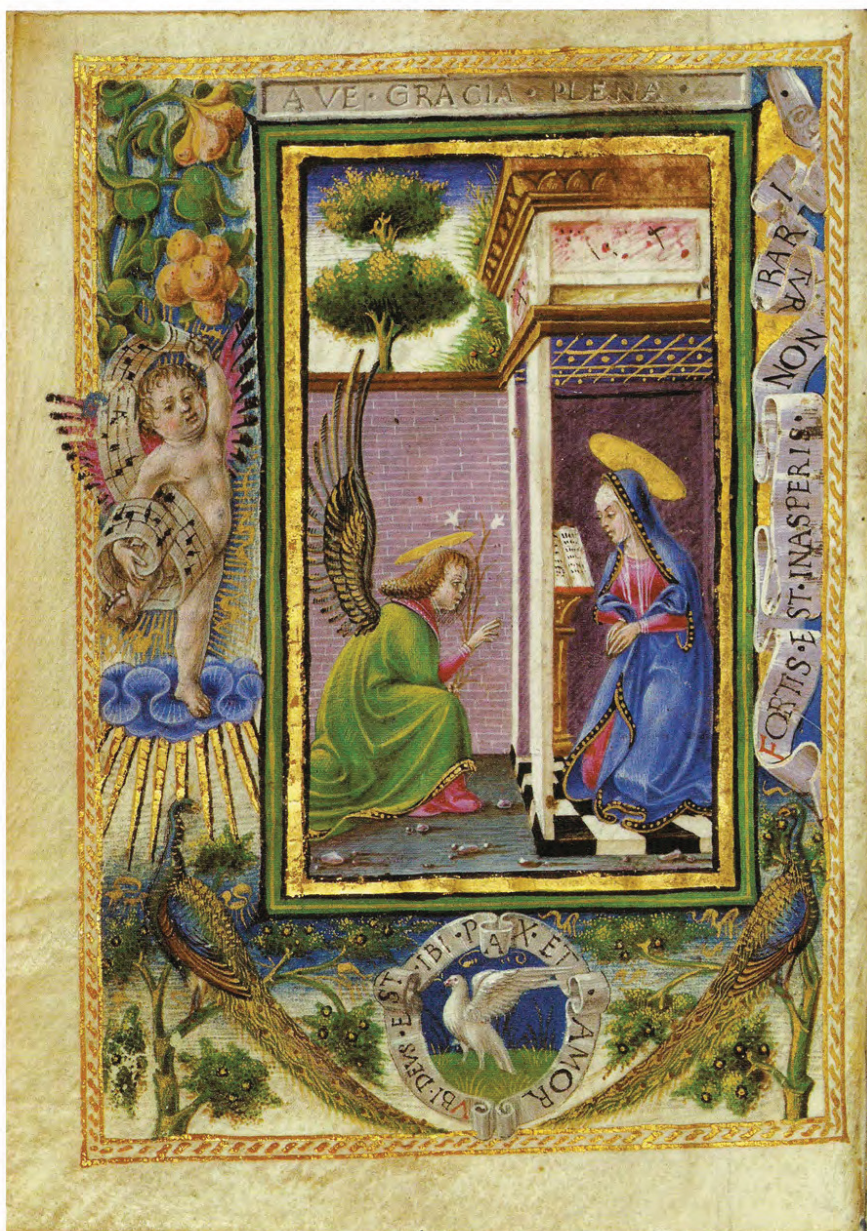 AVE · GRACIA · PLENA ·
FORTIS · EST · INASPERIS · NON TVRBARI
VBI · DEVS · EST · IBI · PAX · ET · AMOR